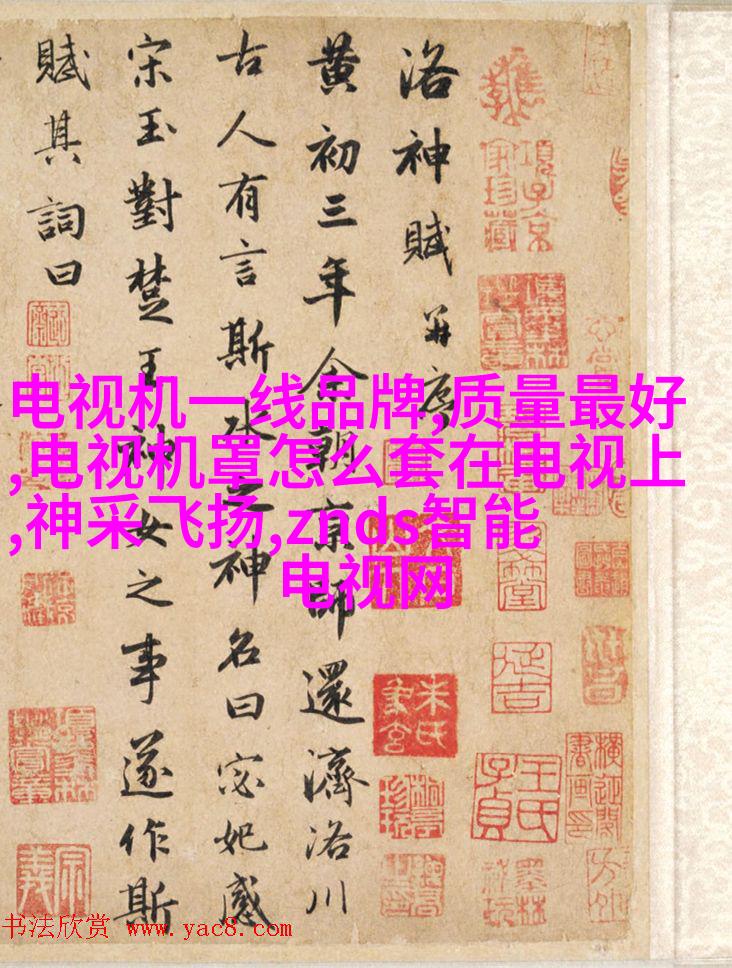 洛神賦并序
黄初三年余朝京師還濟洛川
古人有言斯水之神名曰宓妃感
宋玉對楚王神女之事遂作斯
賦其詞曰
电视机一线品牌,质量最好
,电视机罩怎么套在电视上
,神采飞扬,znds智能
电视网
項子京家珍藏
王氏子貞
书法欣赏 www.yac8.com